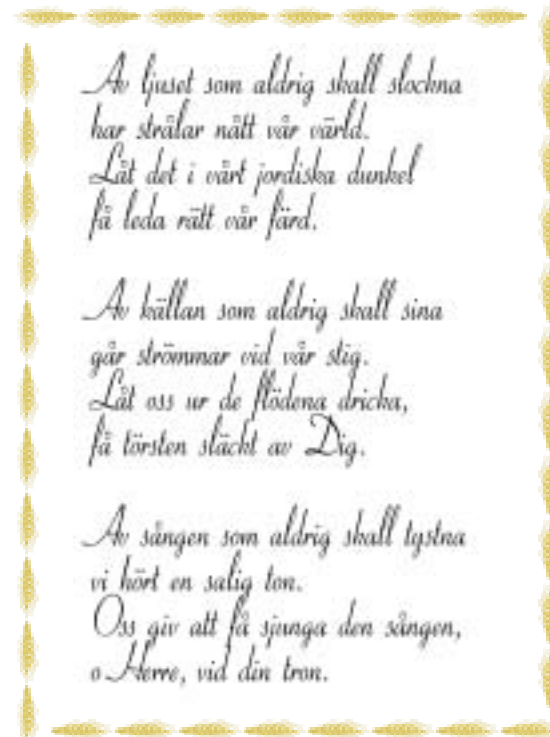 Av ljuset som aldrig skall slockna
har strålar nått vår värld.
Låt det i vårt jordiska dunkel
få leda rätt vår färd.
Av källan som aldrig skall sina
går strömmar vid vår stig.
Låt oss ur de flödena dricka,
få törsten släckt av Dig.
Av sången som aldrig skall tystna
vi hört en salig ton.
Oss giv att få sjunga den sången,
o Herre, vid din tron.